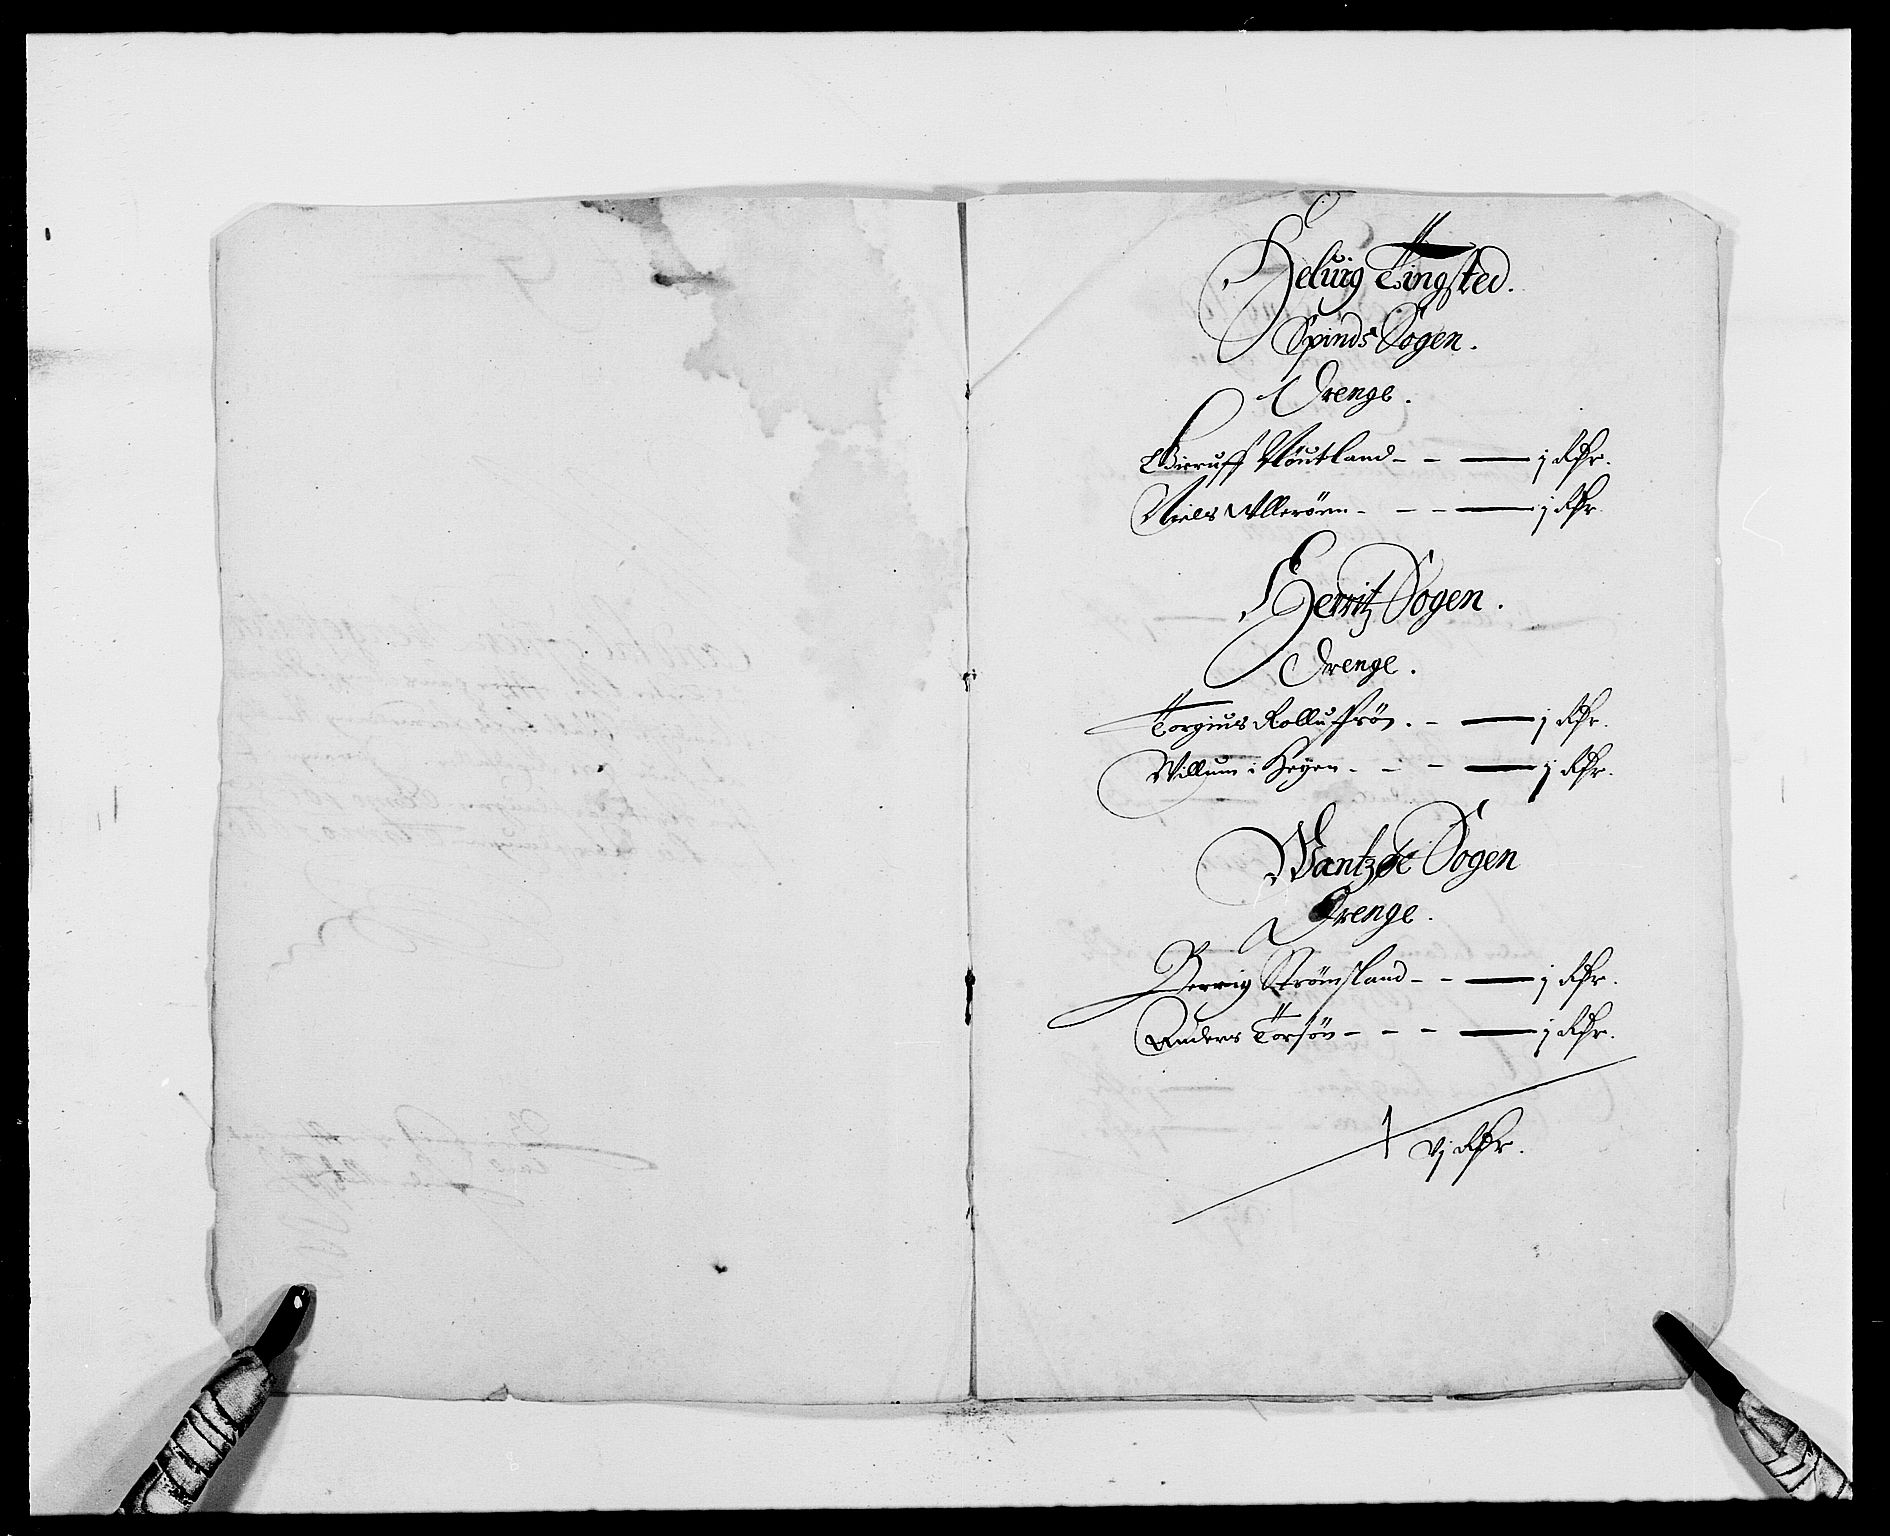 Heluig Tingsted.
Spinds Sogen.
Drenge.
Bieruff Nöutland - - — j Rdr.
Niels Ulleröen - - - — j Rdr.
Herritz Sogen.
Drenge.
Torgius Rolluffsön. - — j Rdr.
Willum i Heyen - - - — j Rdr.
Wantzøe Sogen
Drenge.
Berrig Strömsland - - — j Rdr.
Anders Torsön - - - — j Rdr.
vj Rdr.